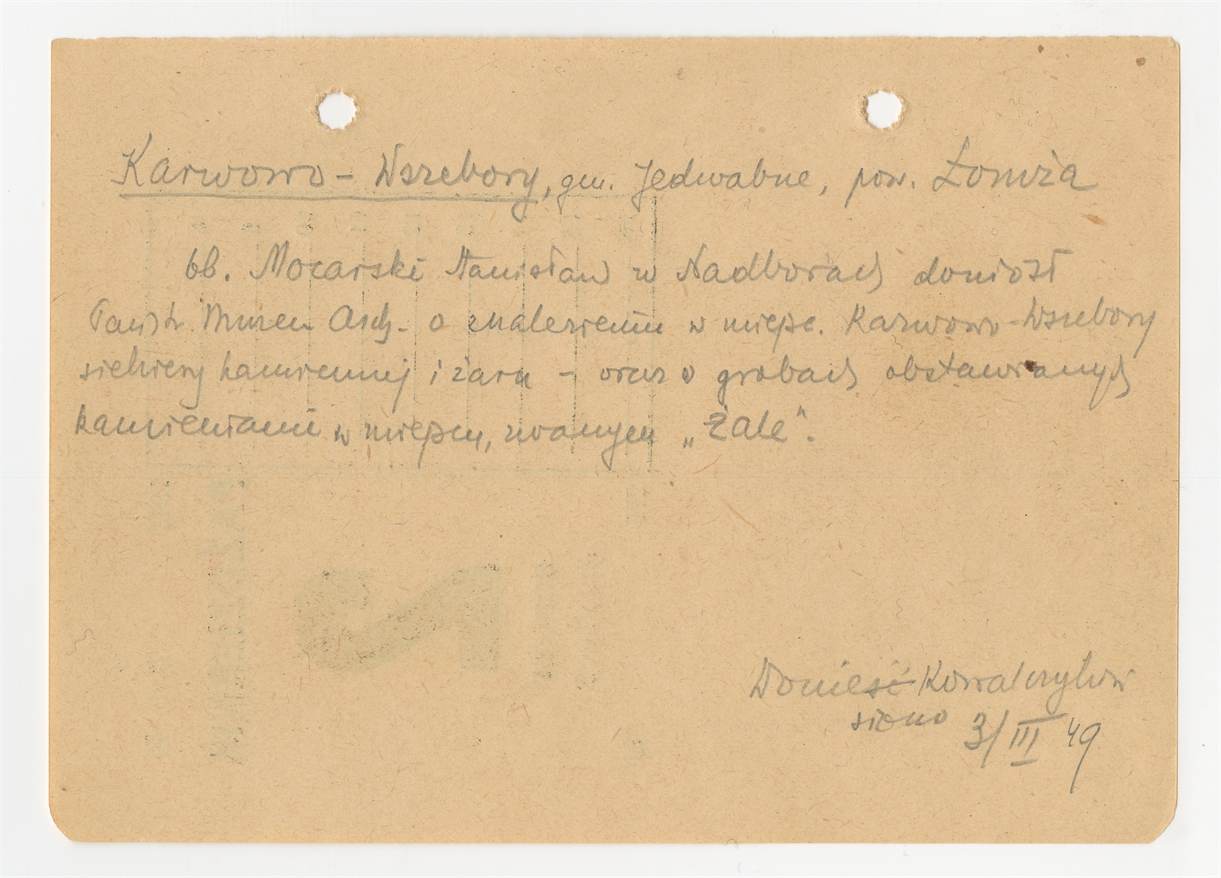 Karwowo – Wszebory, gm. Jedwabne, pow. Łomża
ob. Mocarski Stanisław w Nadborach doniósł
Państw. Muzeu Arch. o znalezieniu w miejsc. Karwowo-Wszebory
siekiery kamiennej i żaren – oraz o grobach obstawianych
kamieniami w miejscu, zwanym „Żale".
Donieść Kowalczykow
siono 3/III 49